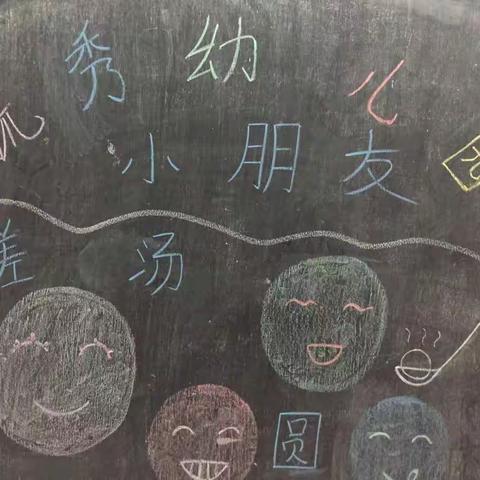 秀幼儿
小朋友
搓汤
圆